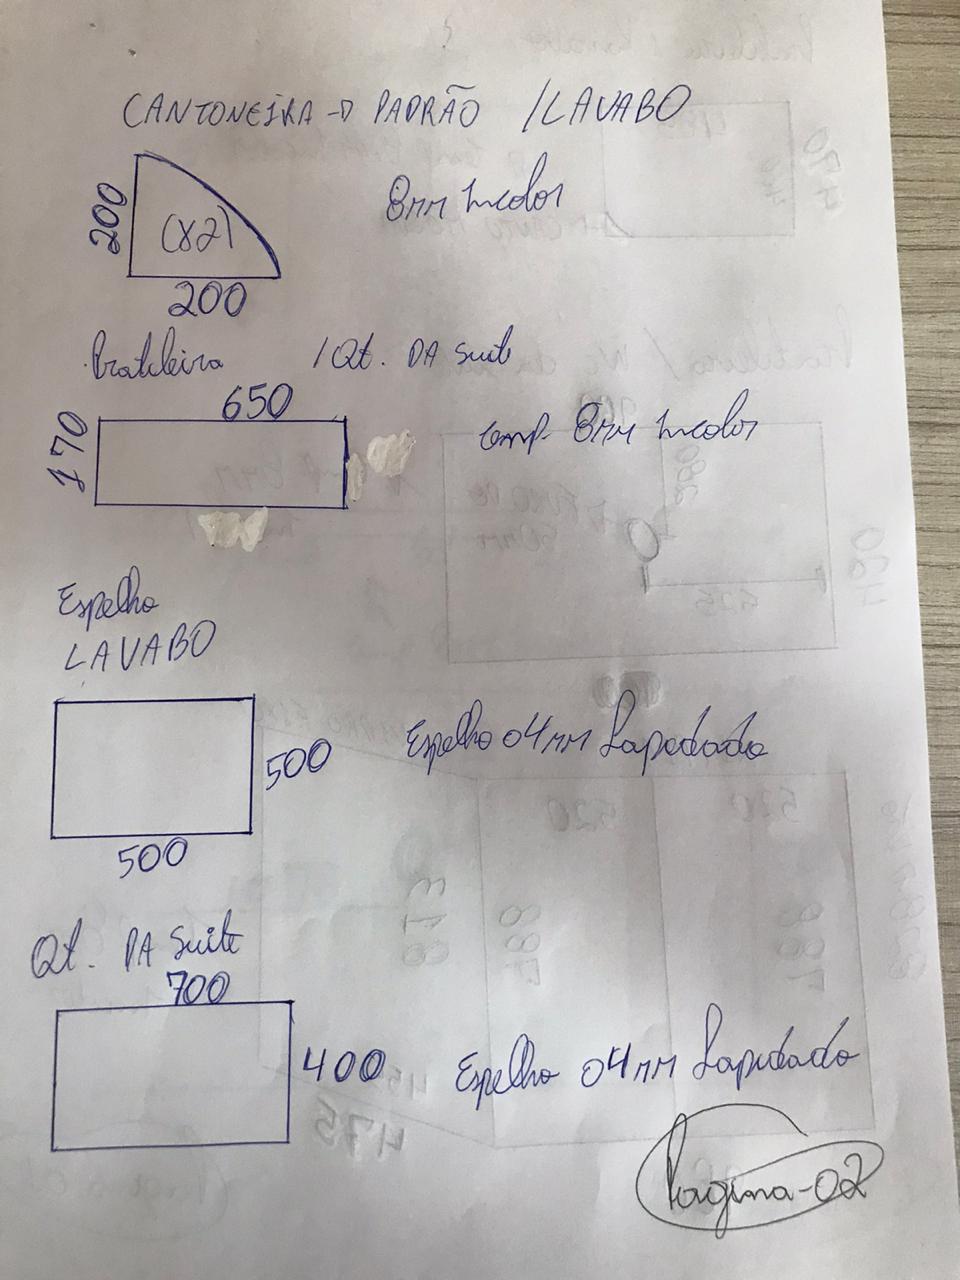 CANTONEIRA → PADRÃO /LAVABO
200
(x2)
8mm Incolor
200
Prateleira /Qt. DA Suite
650
170
temp. 8mm Incolor
Espelho
LAVABO
500
Espelho 04mm Lapidado
500
Qt. DA Suite
700
400
Espelho 04mm Lapidado
Pagina-02